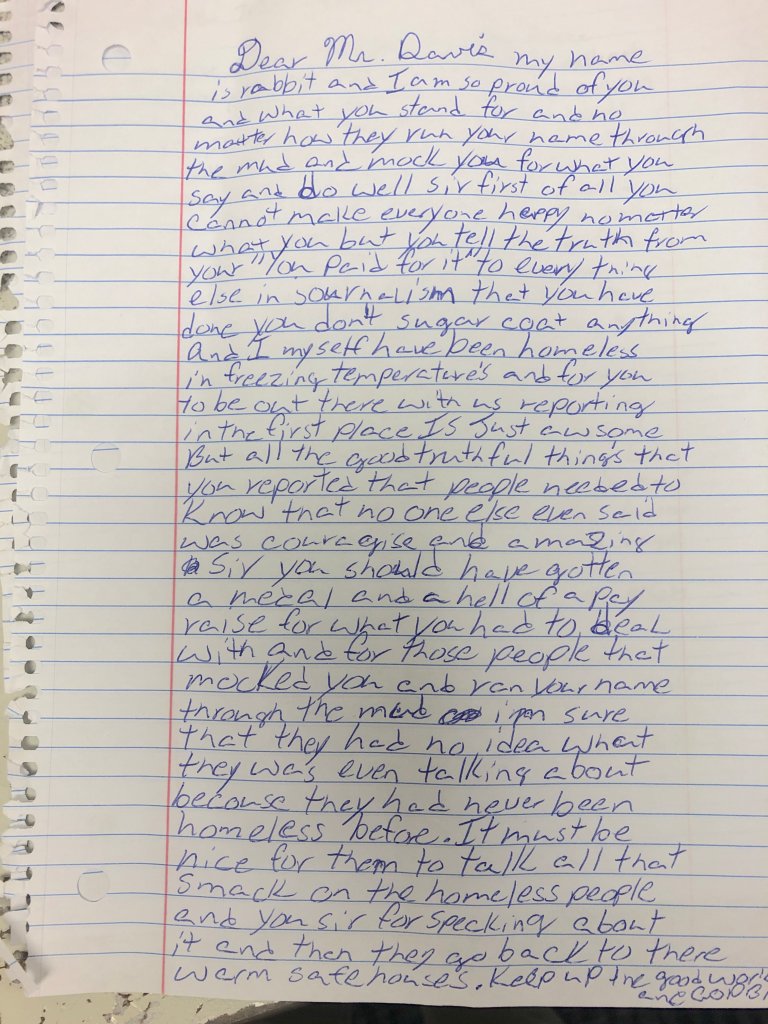 Dear Mr. Davis my name
is rabbit and I am so proud of you
and what you stand for and no
matter how they run your name through
the mud and mock you for what you
say and do well sir first of all you
cannot make everyone happy no matter
what you but you tell the truth from
your "You Paid for it" to every thing
else in journalism that you have
done you don't sugar coat anything
And I myself have been homeless
in freezing temperature's and for you
to be out there with us reporting
in the first place IS Just awsome
But all the good truthful things that
you reported that people needed to
Know that no one else even said
was couragise and amazing
Sir you should have gotten
a medal and a hell of a pay
raise for what you had to deal
with and for those people that
mocked you and ran your name
through the mud i'm sure
that they had no idea what
they was even talking about
because they had never been
homeless before. It must be
nice for them to talk all that
Smack on the homeless people
and you sir for specking about
it and then they go back to there
warm safe houses. Keep up the good work
and GOD